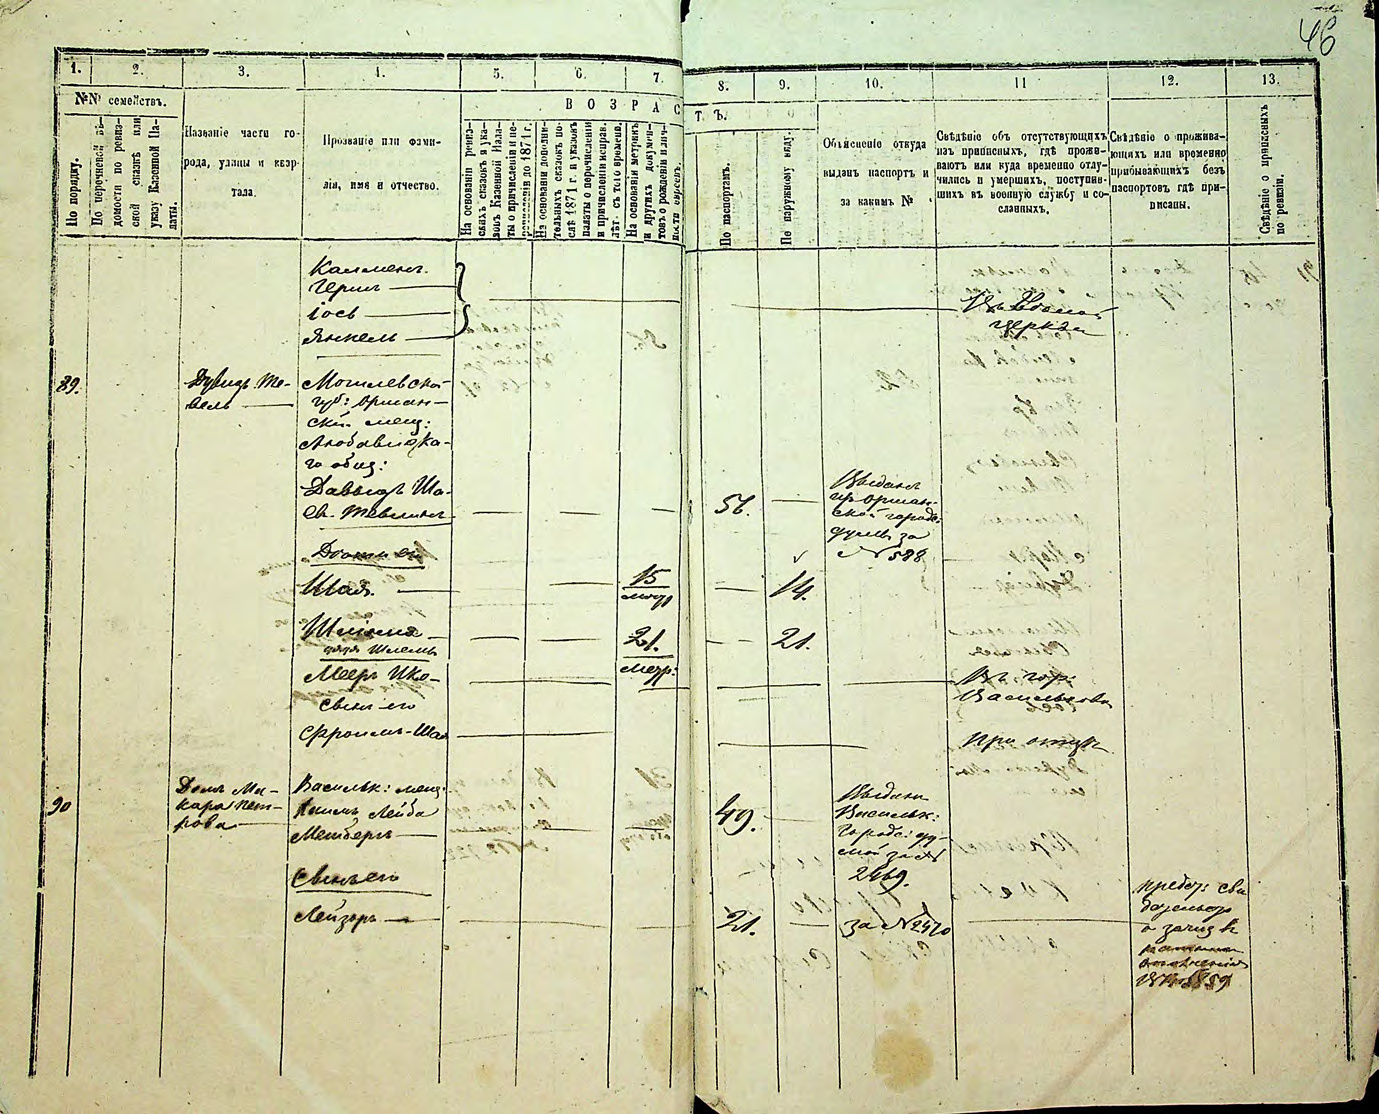 46
1.
2.
3.
4.
5.
6.
7.
8.
9.
10.
11
12.
13.
№№ семействъ.
По порядку.
По перечневой вѣ-
домости по ревиз-
ской сказкѣ или
указу Казенной Па-
латы.
Названіе части го-
рода, улицы и квар-
тала.
Прозваніе или фами-
лія, имя и отчество.
ВОЗРАС
ТЪ.
На основаніи ревиз-
скихъ сказокъ и ука-
зовъ Казенной Пала-
ты о причисленіи и пе-
речисленіи до 1871 г.
На основаніи дополни-
тельныхъ сказокъ по-
слѣ 1871 г. и указовъ
палаты о перечисленіи
и причисленіи исправ.
лѣт. съ того времени.
На основаніи метрикъ
и другихъ докумен-
товъ о рожденіи и лич-
ности евреевъ.
По паспортамъ.
По наружному виду.
Объясненіе откуда
выданъ паспортъ и
за какимъ №
Свѣдѣніе объ отсутствующихъ
изъ приписныхъ, гдѣ прожи-
ваютъ или куда временно отлу-
чились и умершихъ, поступив-
шихъ въ военную службу и со-
сланныхъ.
Свѣдѣніе о прожива-
ющихъ или временно
прибывающихъ безъ
паспортовъ гдѣ при-
писаны.
Свѣдѣніе о прописныхъ
по ревизіи.
Калмень
Герш
Іось
Янкель
церкви
89.
Дувидъ Те-
вель
Могилевской
губ: Оршан-
ской мещ:
Любавичска-
го общ:
Давыдъ Ша-
ев. Тевлинъ
56.
Выданъ
изъ Оршан-
ской городс:
думы за
№ 588
Шая.
15
метр
14.
Шліома
дядя Шлемы
21.
метр:
21.
Мееръ Ицко-
сынъ его
Въ гор:
Василькова
Фроимъ-Шая
при отцѣ
90
Домъ Ма-
кара Пет-
рова
Васильк: мещ:
Хаимъ Лейба
49.
Выданъ
Васильк:
городс: ду-
мой за №
2469.
Сынъ его
Лейзоръ
21.
за № 2470
предст: сви